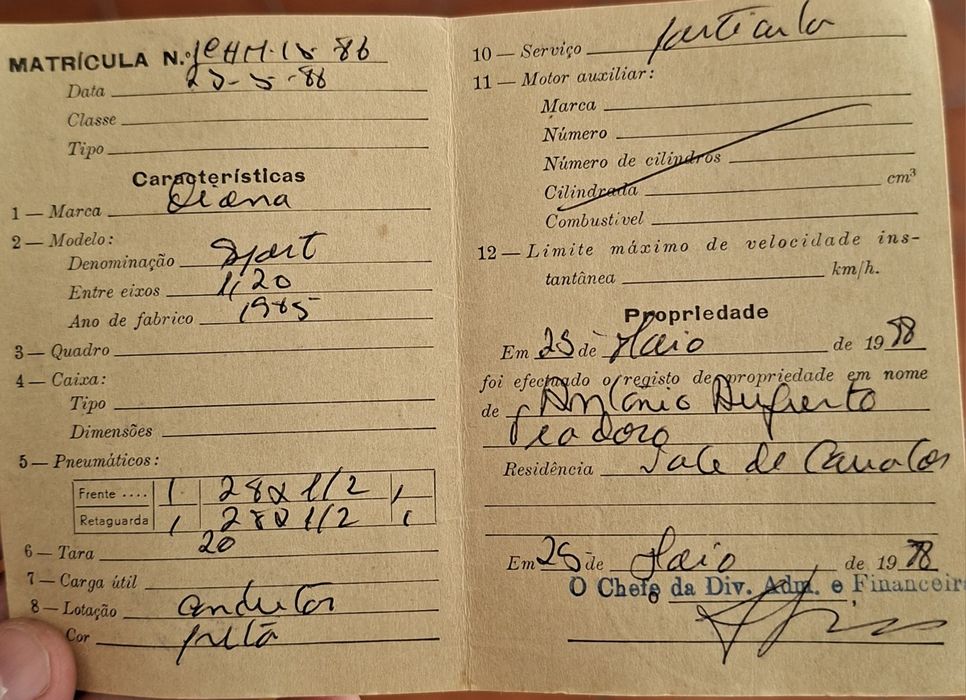 MATRÍCULA N.º 1CHM-15-86
Data 25-5-88
Classe
Tipo
Características
1 — Marca Diana
2 — Modelo:
Denominação Sport
Entre eixos 1,20
Ano de fabrico 1985
3 — Quadro
4 — Caixa:
Tipo
Dimensões
5 — Pneumáticos:
Frente .... 28x 1/2
Retaguarda 28x 1/2
6 — Tara 20
7 — Carga útil
8 — Lotação
Cor preta
10 — Serviço particular
11 — Motor auxiliar:
Marca
Número
Número de cilindros
Cilindrada cm³
Combustível
12 — Límite máximo de velocidade ins-
tantânea km/h.
Propriedade
Em 25 de Maio de 19 88
foi efectuado o registo de propriedade em nome
de António Augusto
Teodoro
Residência Vale de Cavalos
Em 25 de Maio de 19 88
O Chefe da Div. Adm. e Financeir